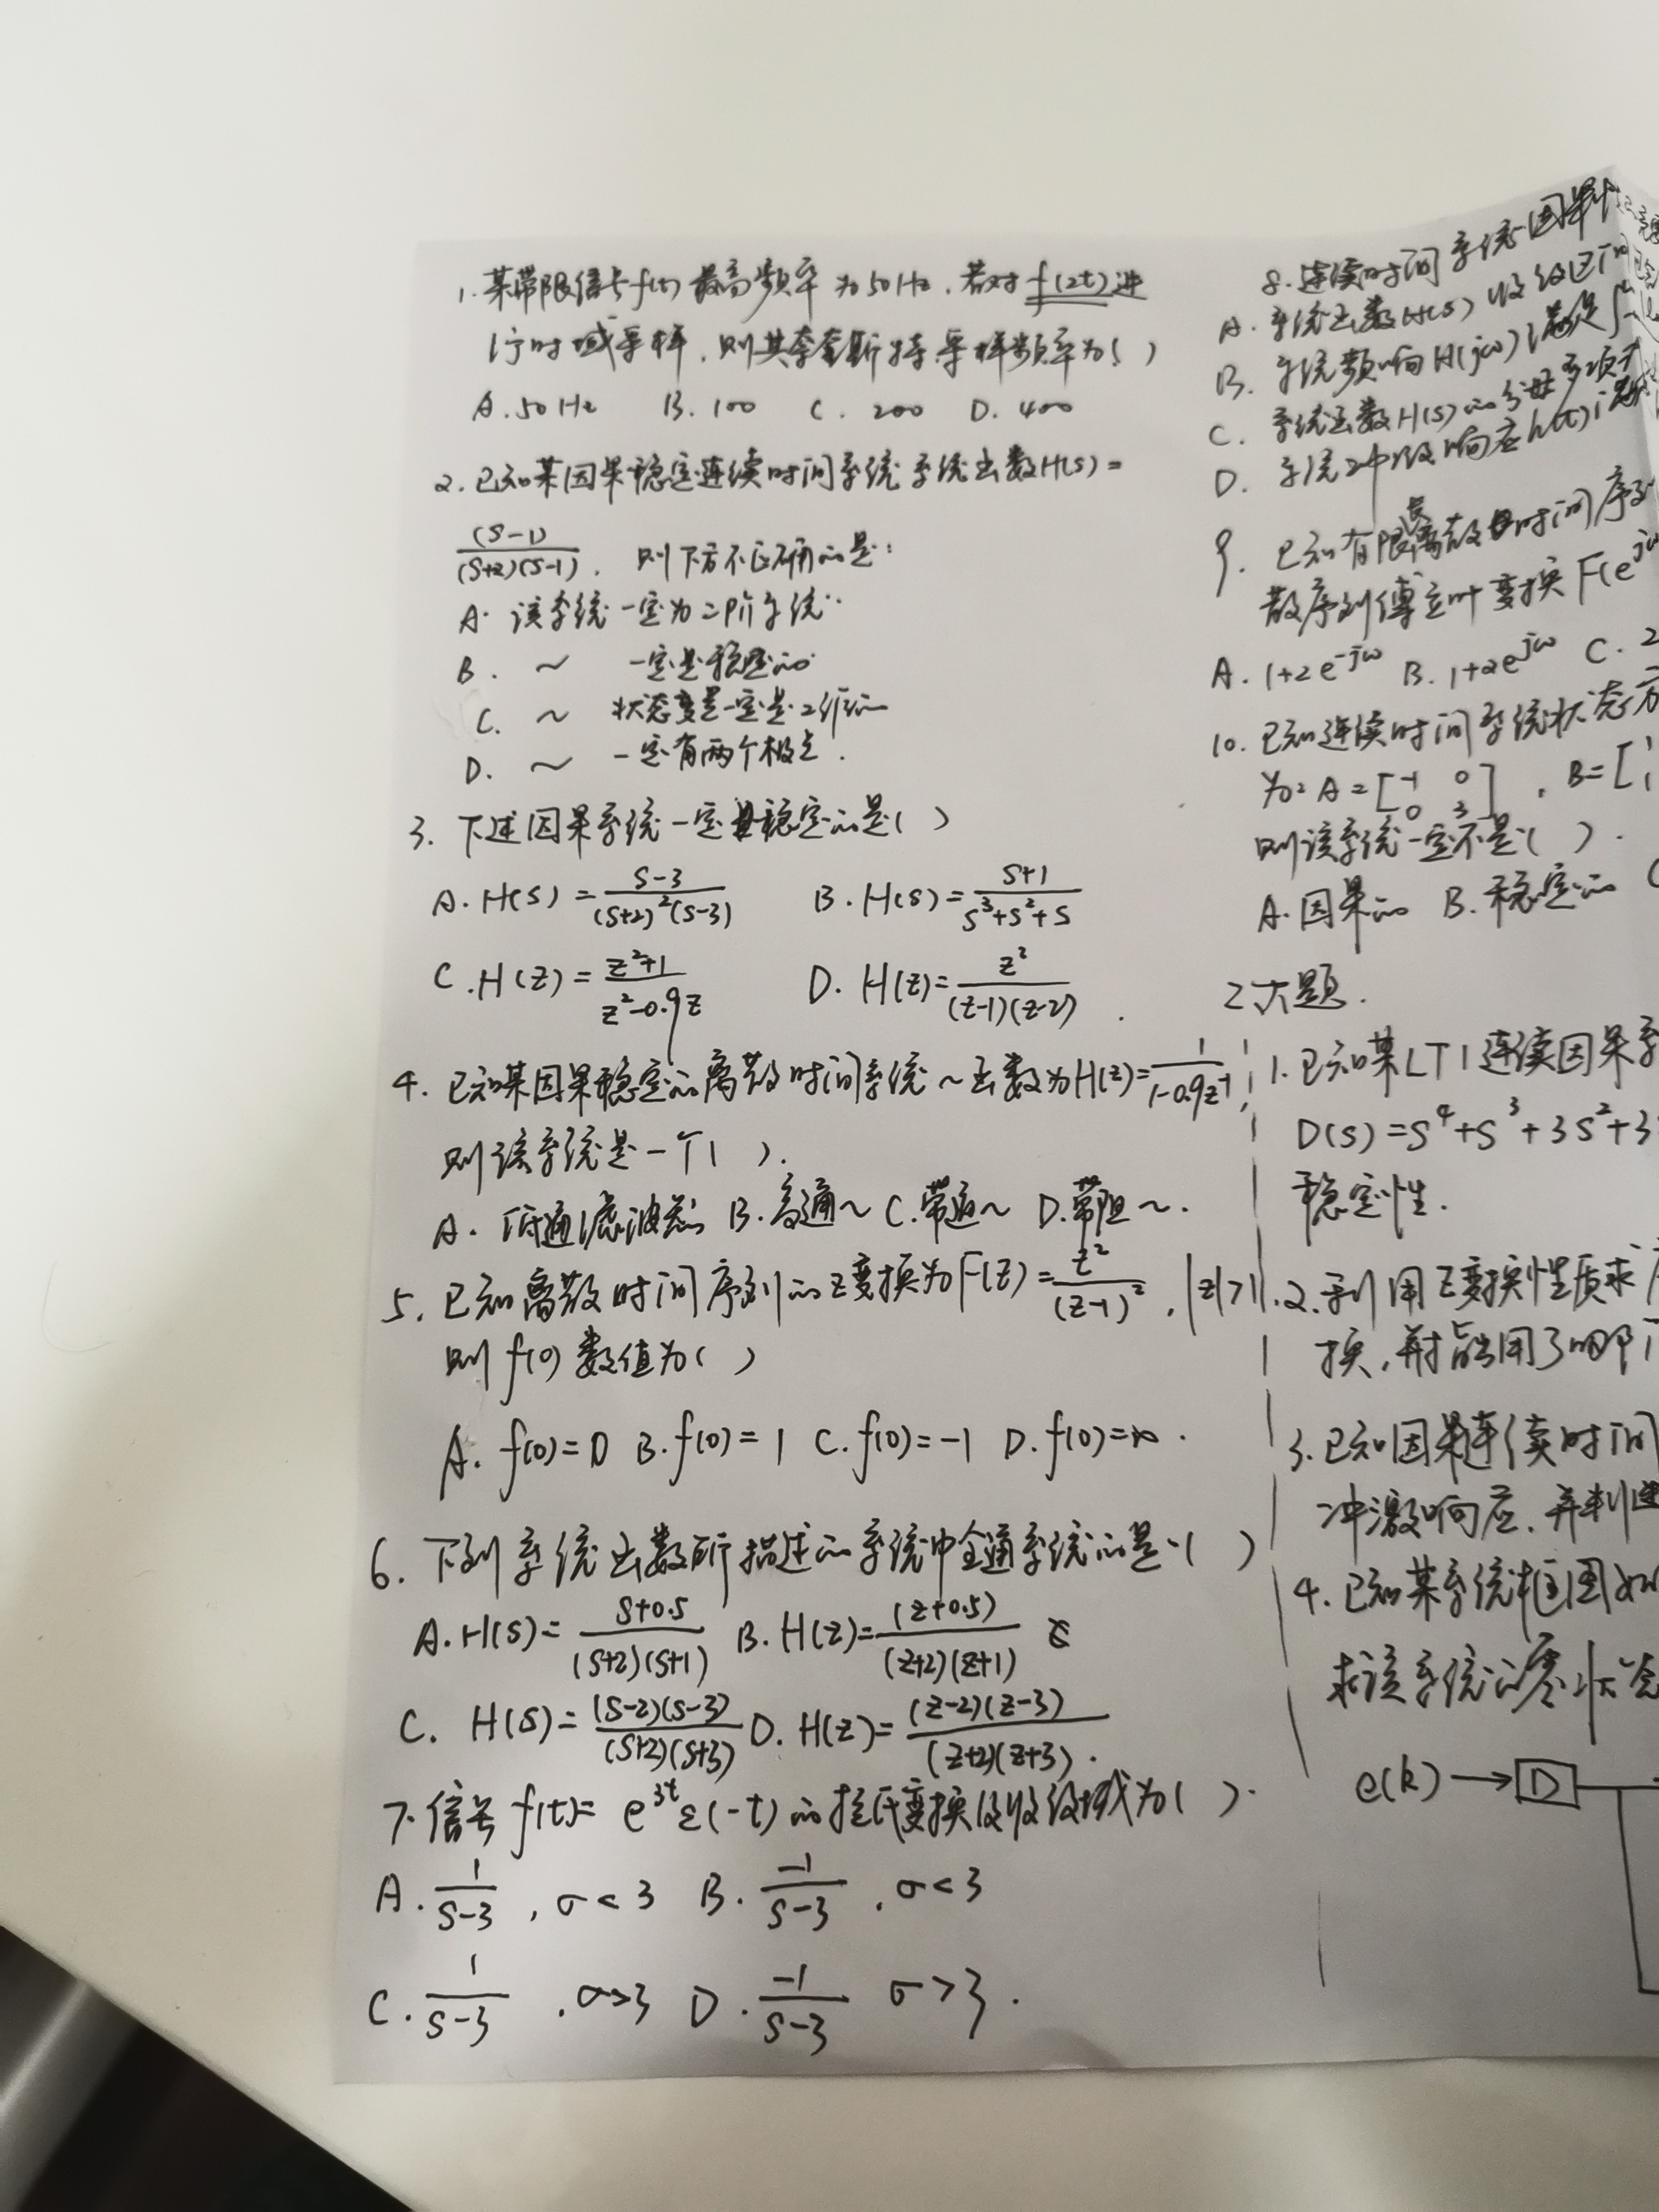 1. 某带限信号f(t) 最高频率为50Hz，若对f(2t)进
行时域采样，则其奈奎斯特采样频率为( )
A. 50Hz B. 100 C. 200 D. 400
2. 已知某因果稳定连续时间系统系统函数H(s)=
(s-1)/((s+2)(s-1)). 则下方不正确的是:
A. 该系统一定为二阶系统
B. ~ 一定是稳定的
C. ~ 状态变量一定是2维的
D. ~ 一定有两个极点.
3. 下述因果系统一定是稳定的是( )
A. H(s)=(s-3)/((s+2)^2(s-3)) B. H(s)=(s+1)/(s^3+s^2+s)
C. H(z)=(z^2+1)/(z^2-0.9z) D. H(z)=z^2/((z-1)(z-2)).
4. 已知某因果稳定的离散时间系统~函数为H(z)=1/(1-0.9z^-1),
则该系统是一个( ).
A. 低通滤波器 B. 高通~ C. 带通~ D. 带阻~.
5. 已知离散时间序列的z变换为F(z)=z^2/(z-1)^2, |z|>1.
则f(0)数值为( )
A. f(0)=0 B. f(0)=1 C. f(0)=-1 D. f(0)=∞.
6. 下列系统函数所描述的系统中全通系统的是( )
A. H(s)=(s+0.5)/((s+2)(s+1)) B. H(z)=(z+0.5)/((z+2)(z+1))
C. H(s)=(s-2)(s-3)/((s+2)(s+3)) D. H(z)=(z-2)(z-3)/((z+2)(z+3)).
7. 信号f(t)=e^{3t}ε(-t)的拉氏变换及收敛域为( ).
A. 1/(s-3), σ<3 B. -1/(s-3), σ<3
C. 1/(s-3), σ>3 D. -1/(s-3) σ>3.
8. 连续时间系统因果
A. 系统函数H(s)收敛区间
B. 系统频响H(jω)满足
C. 系统函数H(s)的分母多项式
D. 系统冲激响应h(t)满
9. 已知有限长离散时间序列
散序列傅立叶变换F(e^{jω
A. 1+2e^{-jω} B. 1+2e^{jω} C. 2
10. 已知连续时间系统状态方
为: A=[-1 0; 0 3], B=[1 1
则该系统一定不是( ).
A. 因果的 B. 稳定的 C
2大题.
1. 已知某LTI连续因果系
D(s)=s^4+s^3+3s^2+3
稳定性.
2. 利用z变换性质求
换, 并指出用了哪
3. 已知因果连续时间
冲激响应, 并判断
4. 已知某系统框图如
求该系统的零状态
e(k) → D